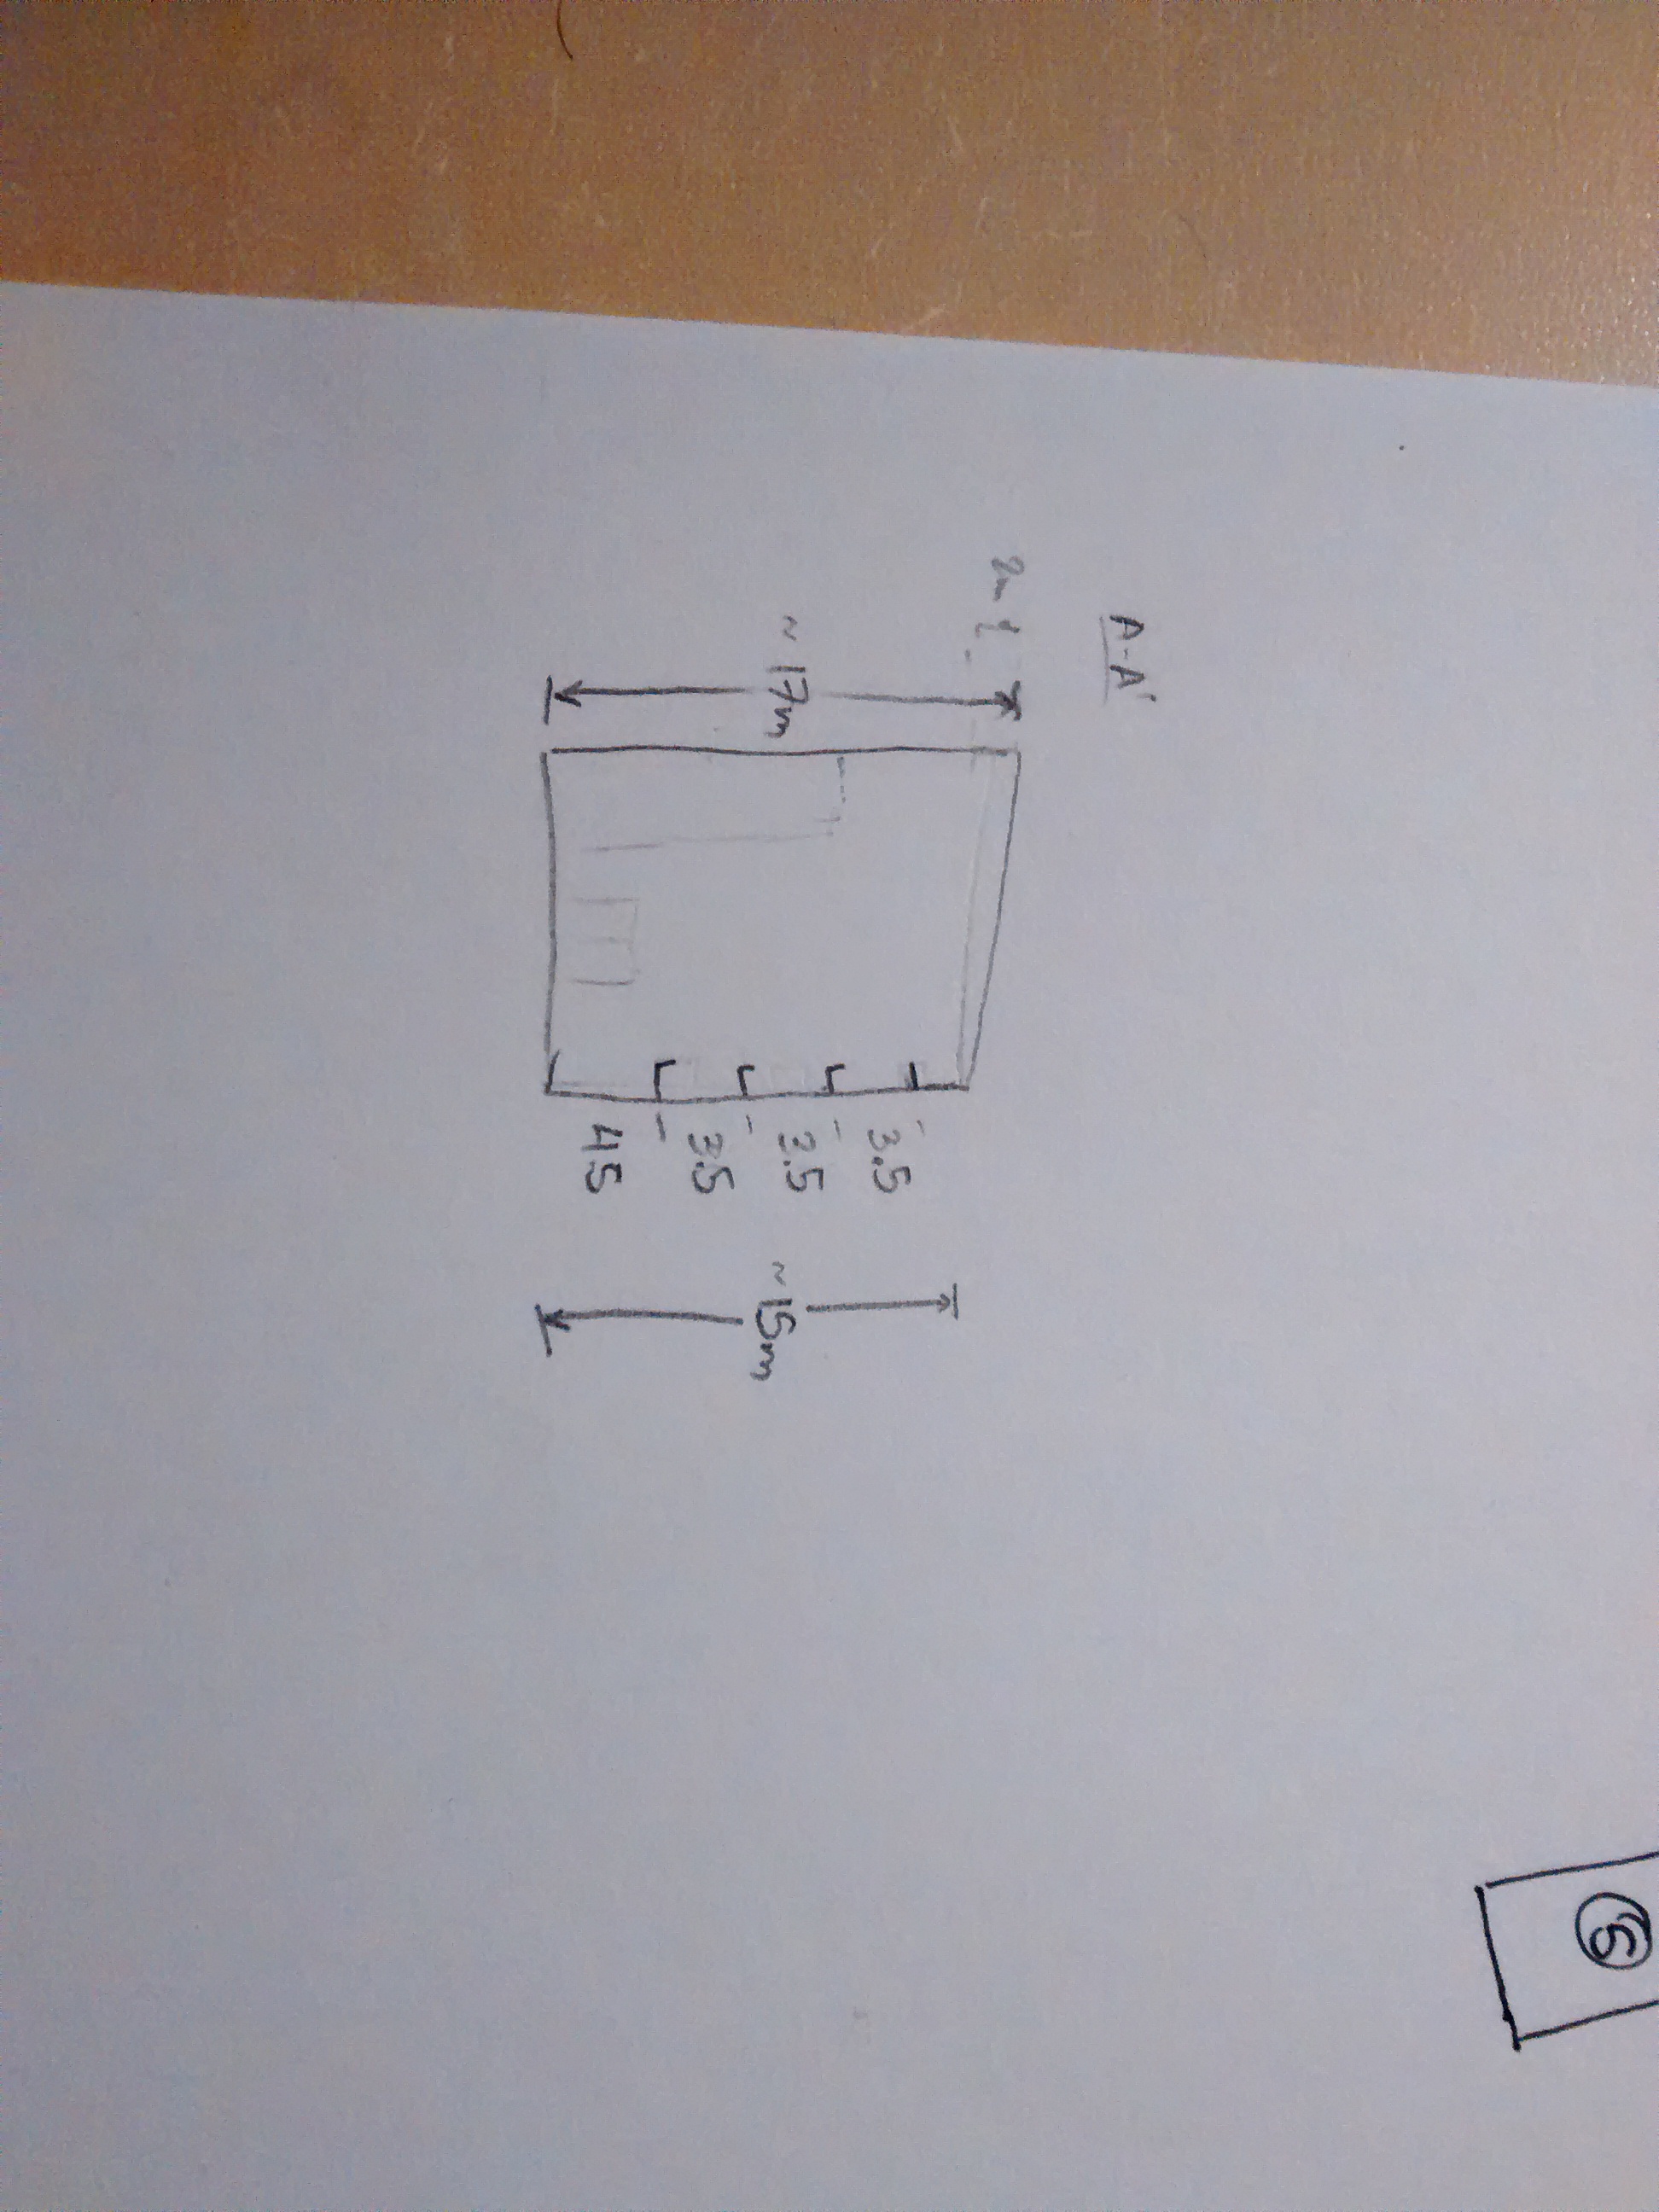 A-A'
2m
~17m
3.5
3.5
3.5
4.5
~15m
5